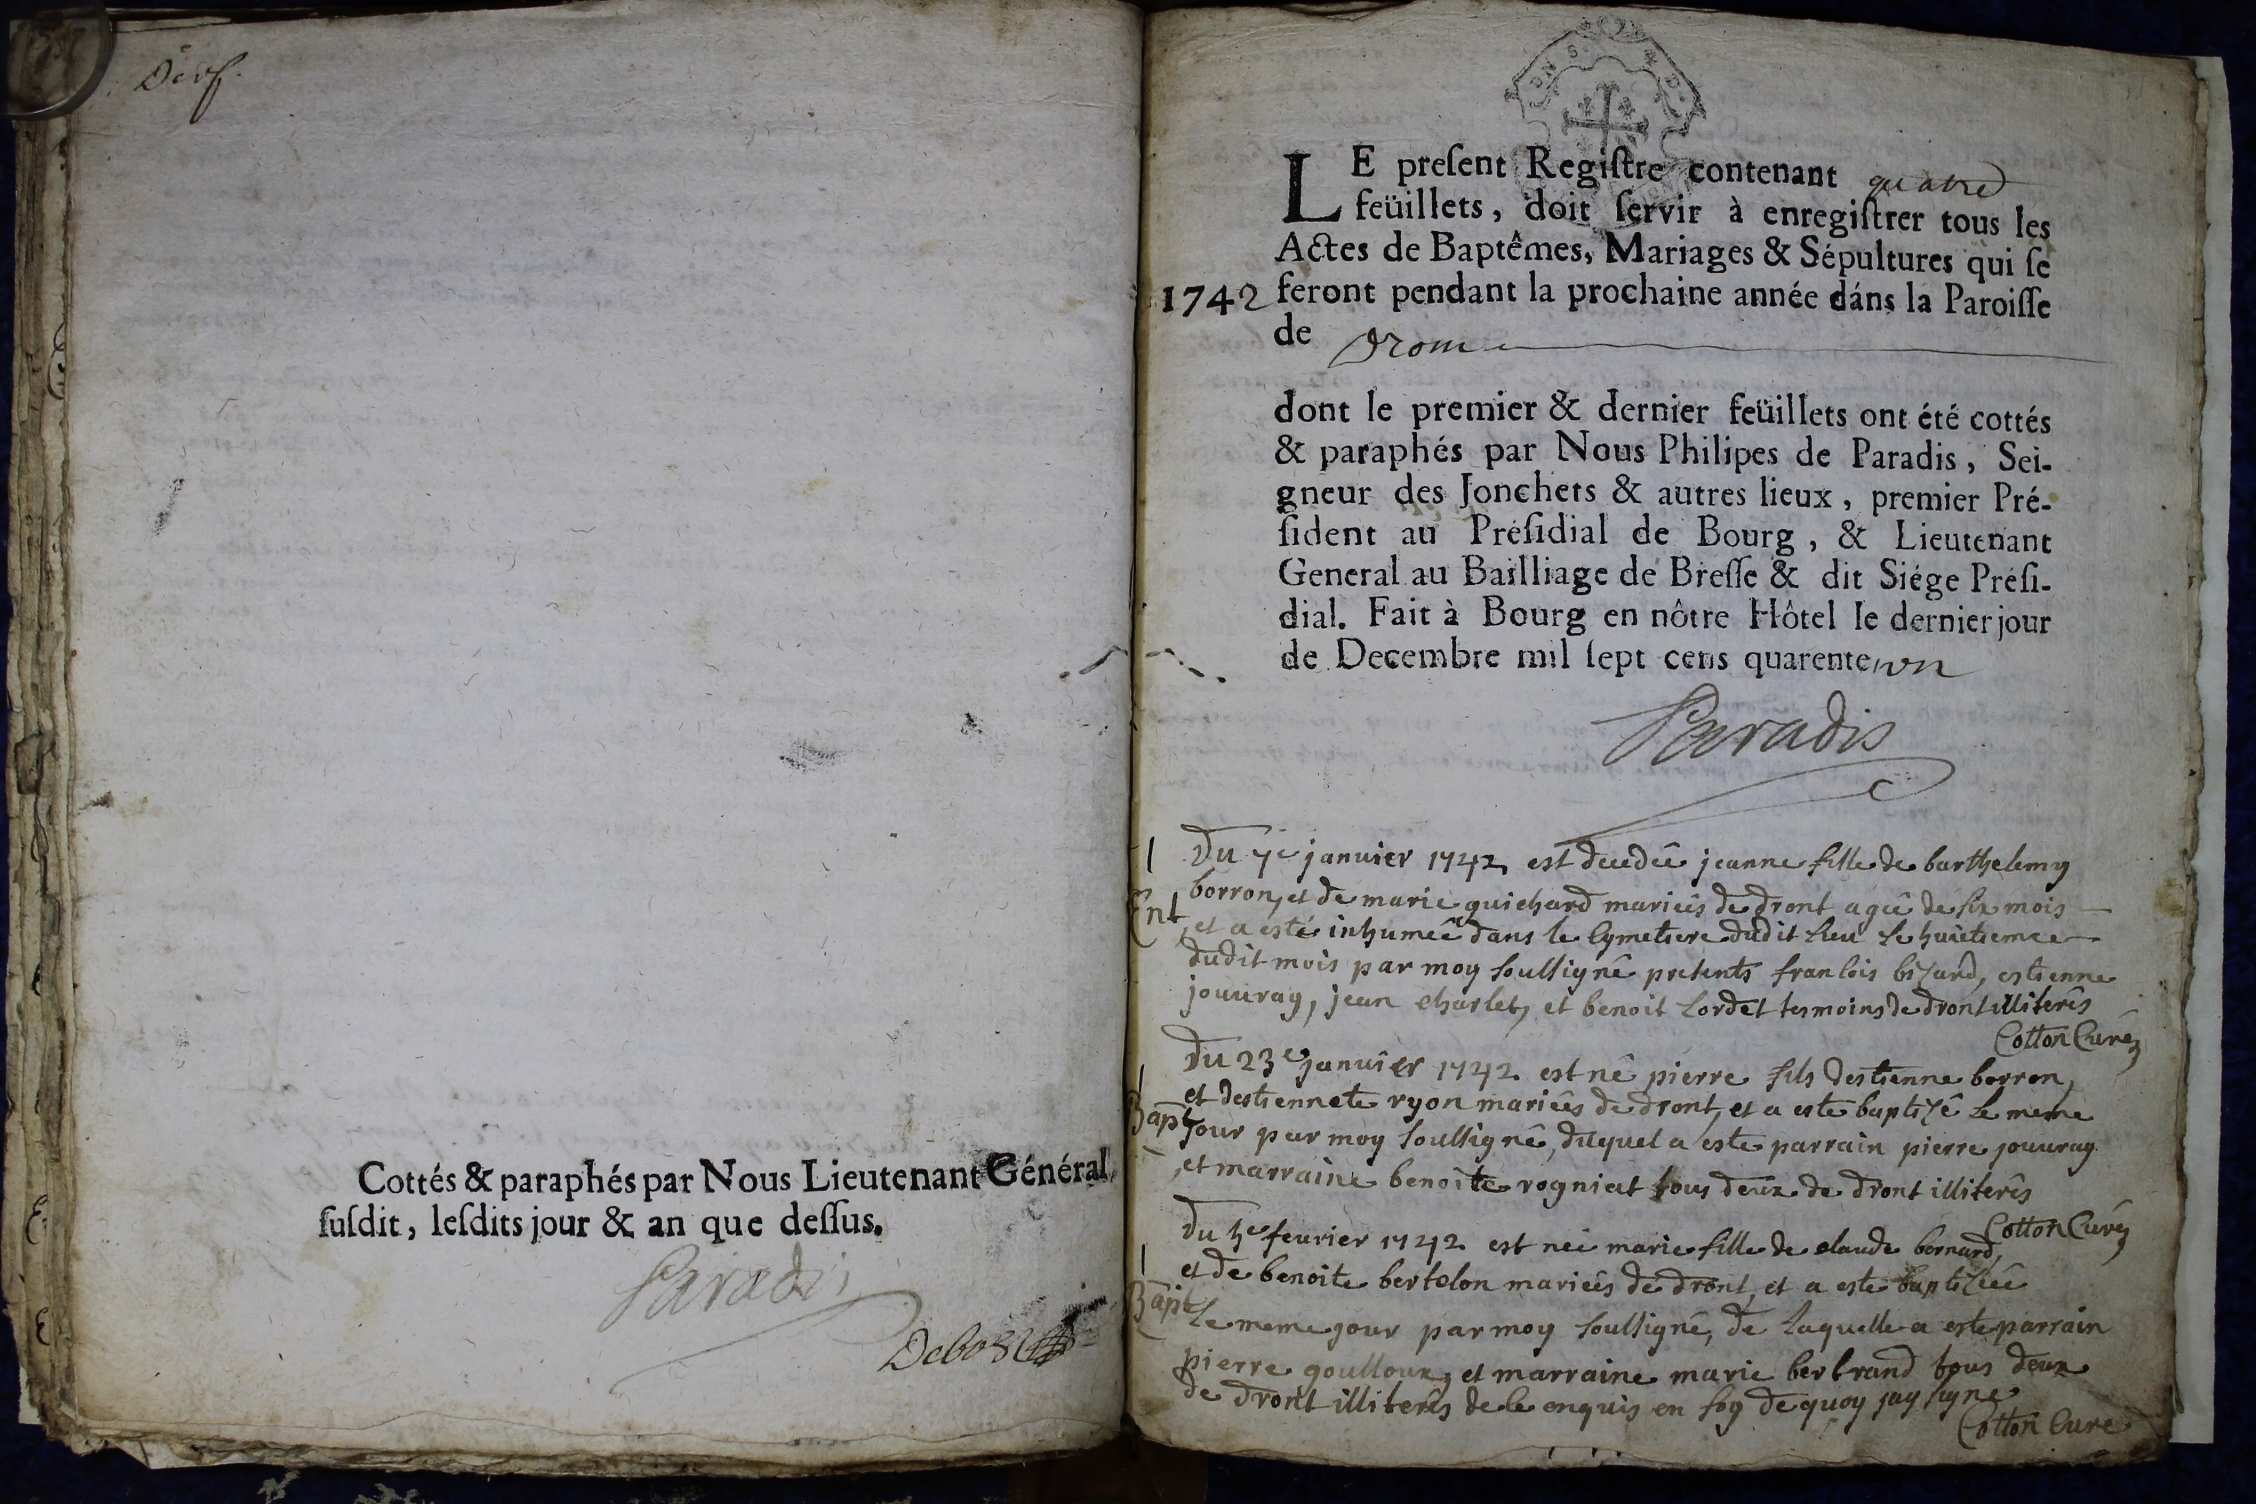 Cottés & paraphés par Nous Lieutenant Général
ſuſdit, leſdits jour & an que deſſus.
Paradis
LE preſent Regiſtre contenant quatre
feüillets, doit ſervir à enregiſtrer tous les
Actes de Baptêmes, Mariages & Sépultures qui ſe
1742 feront pendant la prochaine année dáns la Paroiſſe
de Drom
dont le premier & dernier feüillets ont été cottés
& paraphés par Nous Philipes de Paradis, Sei-
gneur des Jonchets & autres lieux, premier Pré-
ſident au Préſidial de Bourg, & Lieutenant
General au Bailliage de Breſſe & dit Siége Préſi-
dial. Fait à Bourg en nôtre Hôtel le dernier jour
de Decembre mil ſept cens quarente un
Paradis
Du 7e janvier 1742 est decedeê jeanne fille de barthelemy
borron, et de marie guichard mariês de dront ageê de six mois
Ent et a esté inhumeê dans le cymetiere dudit lieu le huictieme
dudit mois par moy soussignê presents francois bizard, estienne
jouvray, jean charlet, et benoit cordet tesmoins de dront illiterês
Cotton Curé
Du 23e janvier 1742 est nê pierre fils destienne borron,
et destiennete ryon mariês de dront, et a este baptizê le meme
Bapt jour par moy soussignê, duquel a este parrain pierre jouvray
et marraine benoite rogniat tous deux de dront illiterês
Cotton Curé
Du 3e fevrier 1742 est neê marie fille de claude bornard,
et de benoite bertolon mariês de dront, et a este baptizeê
Bapt le meme jour par moy soussignê, de laquelle a este parrain
pierre goulloux, et marraine marie bertrand tous deux
de dront illiterês de ce enquis en foy de quoy jay signe
Cotton Cure